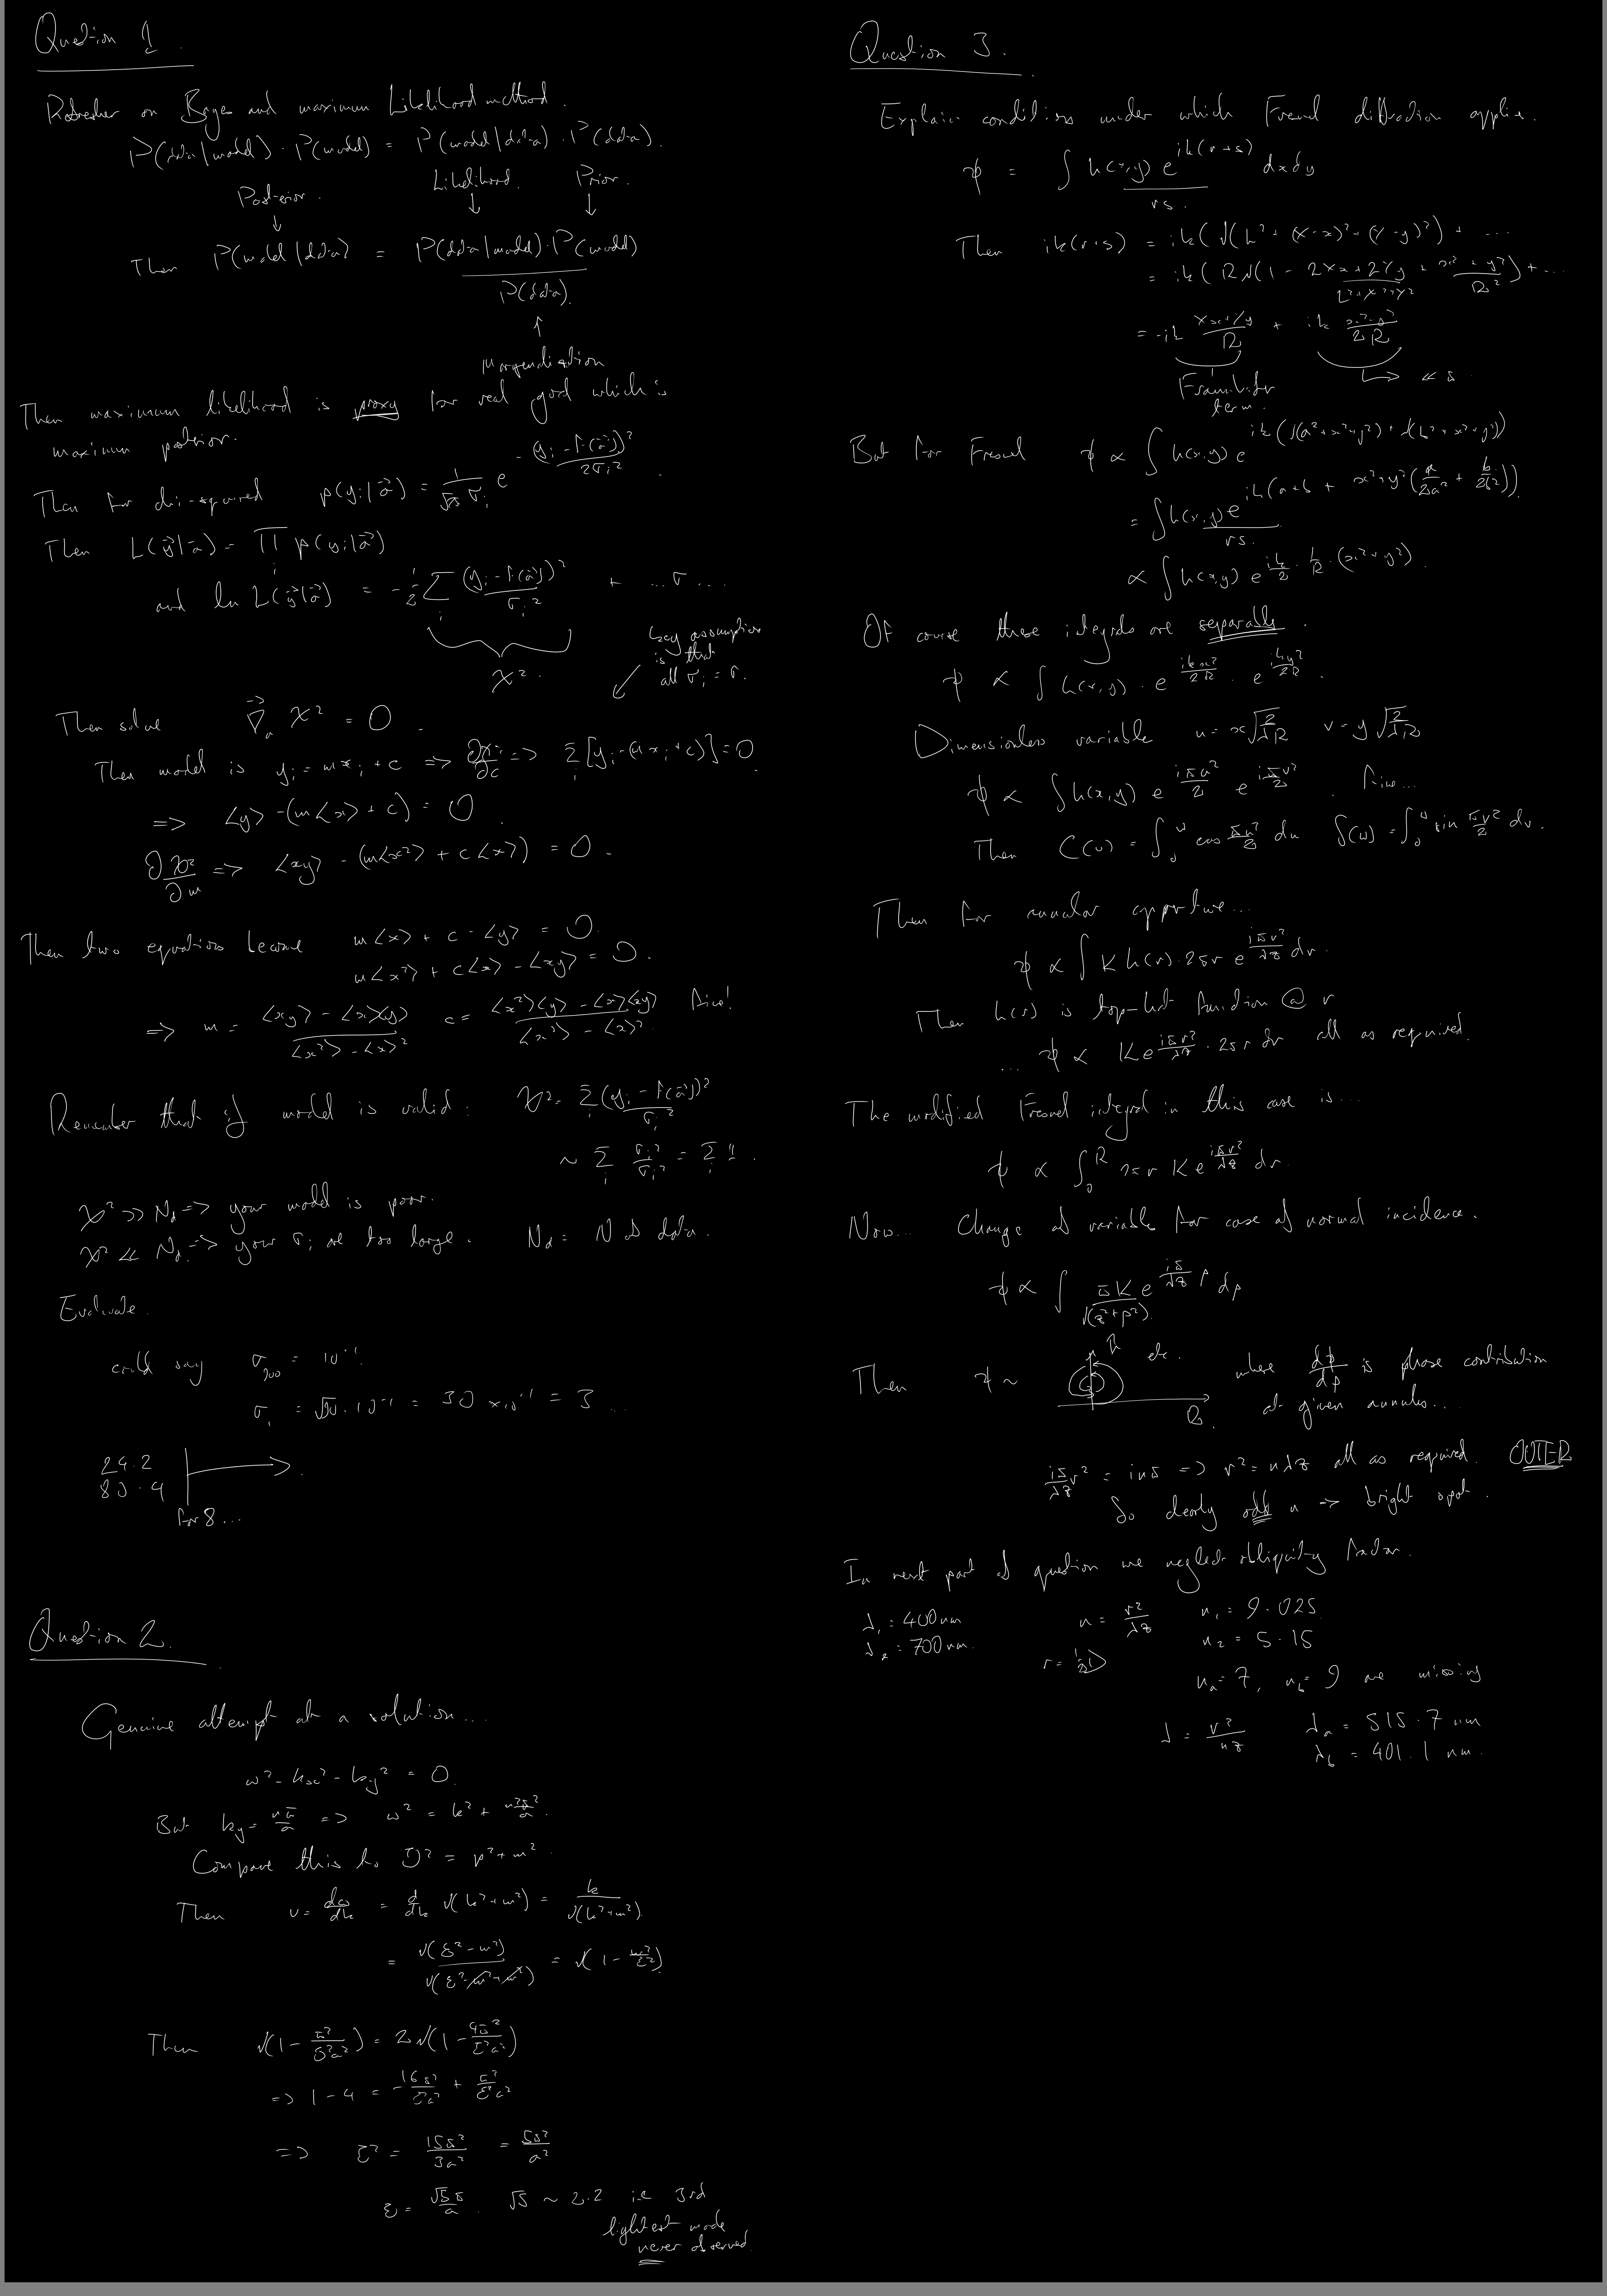 Question 1.
Refresher on Bayes and maximum Likelihood method.
P(data|model) · P(model) = P(model|data) · P(data).
Posterior. Likelihood. Prior.
↓ ↓ ↓
Then P(model|data) = P(data|model) · P(model) / P(data).
↑
Then maximum likelihood is proxy for real goal which is
maximum posterior.
Then for chi-squared p(y_i|a⃗) = 1/√2π σ_i e^{-(y_i - f(a⃗))²/2σ_i²}.
Then L(y⃗|a⃗) = ∏_i p(y_i|a⃗)
and ln L(y⃗|a⃗) = -½ Σ_i (y_i - f(a⃗))²/σ_i² + ... σ ...
χ².
key assumption
is that
all σ_i = σ.
Then solve ∇⃗_a χ² = 0.
Then model is y_i = mx_i + c => ∂χ²/∂c => Σ_i [y_i - (mx_i + c)] = 0.
=> <y> - (m<x> + c) = 0.
∂χ²/∂m => <xy> - (m<x²> + c<x>) = 0.
Then two equations become m<x> + c - <y> = 0.
m<x²> + c<x> - <xy> = 0.
=> m = (<xy> - <x><y>)/(<x²> - <x>²) c = (<x²><y> - <x><xy>)/(<x²> - <x>²) fine!
Remember that if model is valid: χ² = Σ_i (y_i - f(a⃗))²/σ_i²
~ Σ_i σ_i²/σ_i² = Σ_i 1.
χ² >> N_d => your model is poor.
χ² << N_d => your σ_i are too large. N_d = N of data.
Evaluate.
could say σ_900 = 10^-1.
σ_1 = √900 · 10^-1 = 30 × 10^-1 = 3 ...
24.2
80.4
for 8 ...
Question 2.
Genuine attempt at a solution...
ω² - k_x² - k_y² = 0.
But k_y = nπ/a => ω² = k² + n²π²/a².
Compare this to E² = p² + m².
Then v = dω/dk = d/dk √(k² + m²) = k/√(k² + m²)
= √(E² - m²)/√(E² - m² + m²) = √(1 - m²/E²)
Then √(1 - π²/E²a²) = 2√(1 - 4π²/E²a²)
=> 1 - 4 = -16π²/E²a² + π²/E²a²
=> E² = 15π²/3a² = 5π²/a²
E = √5π/a. √5 ~ 2.2 i.e. 3rd
lightest mode
never observed.
Question 3.
Explain conditions under which Fresnel diffraction applies.
ψ = ∫ h(x,y) e^{ik(r+s)}/rs dxdy
Then ik(r+s) = ik(√(L² + (X-x)² + (Y-y)²) + ...
= ik(R√(1 - (2Xx + 2Yy)/(L²+X²+Y²) + (x² + y²)/R²) + ...
= -ik (Xx + Yy)/R + ik (x²+y²)/2R
Fraunhofer
term.
↳ << π
But for Fresnel ψ ∝ ∫ h(x,y) e^{ik(√(a²+x²+y²) + √(b²+x²+y²))}
= ∫ h(x,y) e^{ik(a+b + x²+y²(a/2a² + b/2b²))}/rs.
∝ ∫ h(x,y) e^{ik/2 · 1/R · (x²+y²)}.
Of course these integrals are separable.
ψ ∝ ∫ h(x,y) · e^{ikx²/2R} · e^{iky²/2R}.
Dimensionless variable u = x√(2/λR) v = y√(2/λR)
ψ ∝ ∫ h(x,y) e^{iπu²/2} e^{iπv²/2}. fine...
Then C(w) = ∫_0^w cos πu²/2 du S(w) = ∫_0^w sin πv²/2 dv.
Then for annular apperture...
ψ ∝ ∫ K h(r) · 2πr e^{iπr²/λz} dr.
Then h(r) is top-hat function @ r
... ψ ∝ K e^{iπr²/λz} · 2πr dr all as required.
The modified Fresnel integral in this case is...
ψ ∝ ∫_0^R 2πr K e^{iπr²/λz} dr.
Now... Change of variable for case of normal incidence.
ψ ∝ ∫ πK/√(z²+ρ²) e^{iπ/λz ρ} dρ
Then ψ ~ etc. where dϕ/dρ is phase contribution
at given annulus...
iπ/λz r² = inπ => r² = nλz all as required. OUTER
So clearly odd n → bright spot.
In next part of question we neglect obliquity factor.
λ_1 = 400nm n = r²/λz n_1 = 9.025.
λ_2 = 700nm. r = ½D n_2 = 5.15
n_a = 7, n_b = 9 are missing
λ = r²/nz λ_a = 515.7 nm
λ_b = 401.1 nm.